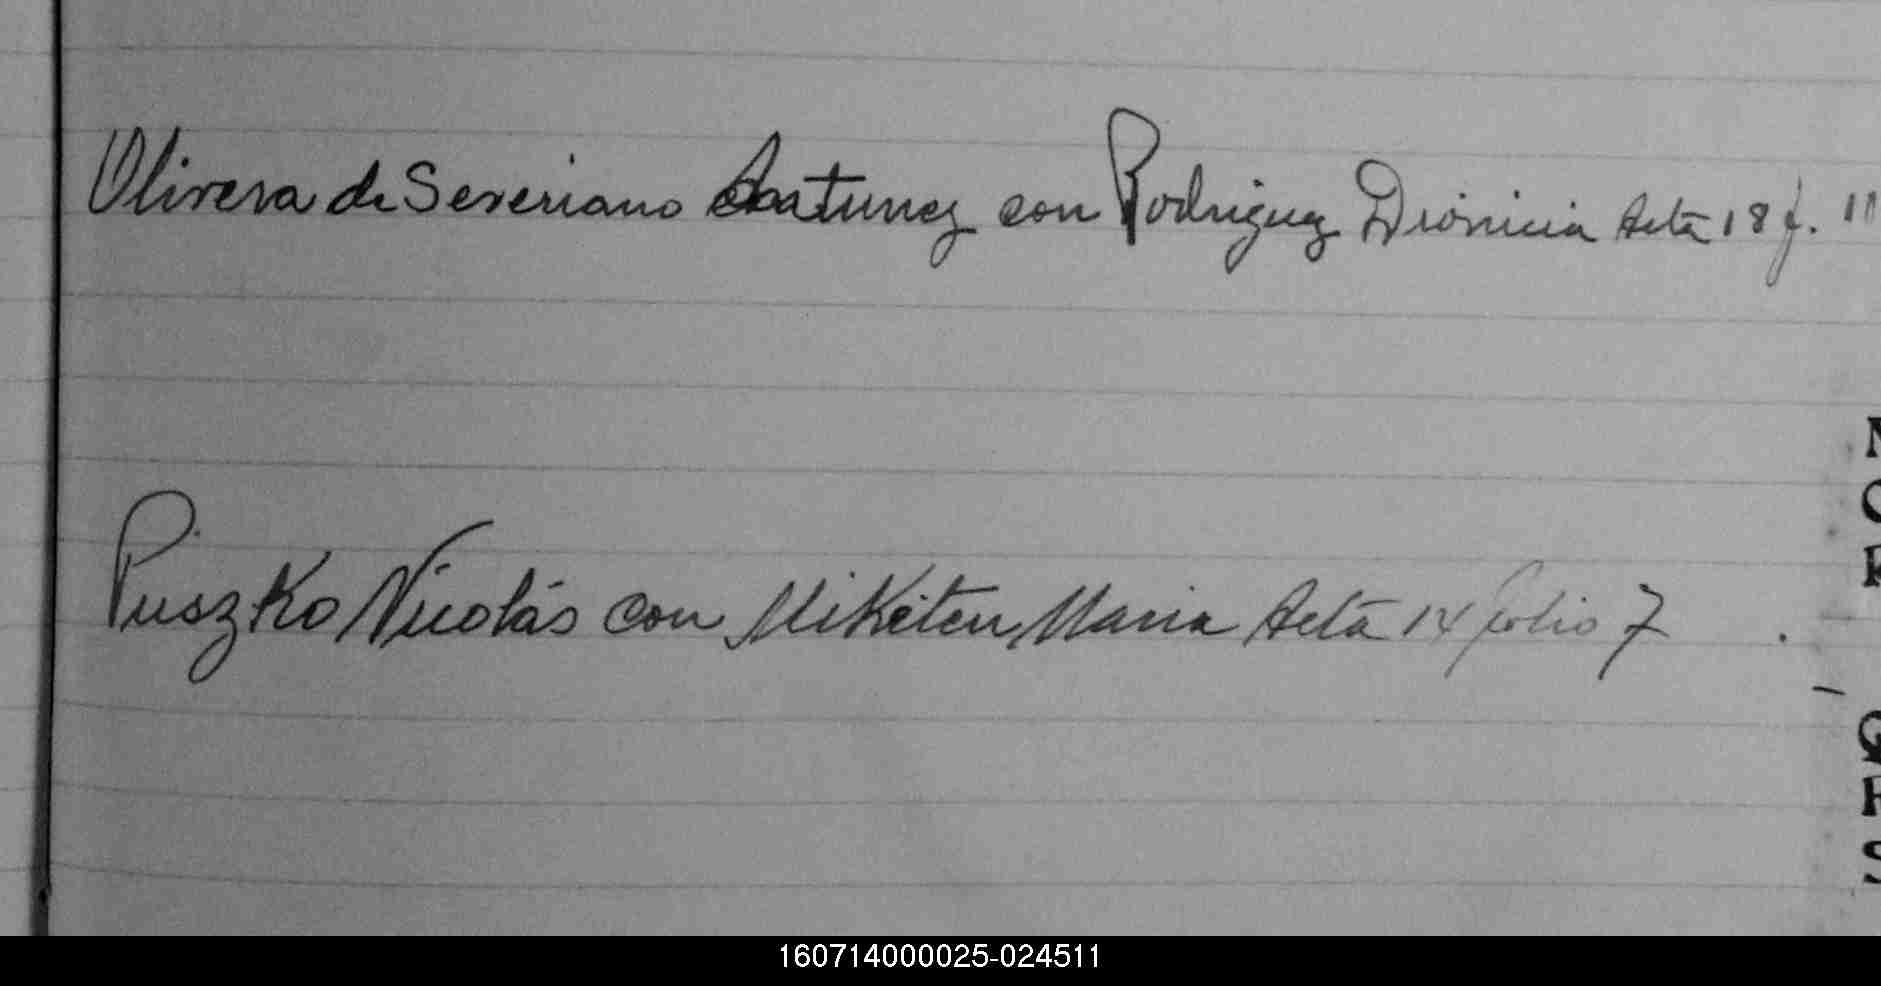 Olivera de Severiano Antunez con Rodriguez Dionicia Acta 18 f. 11
Puszko Nicolás con Mikiten Maria Acta 14 folio 7
N
O
G
160714000025-024511